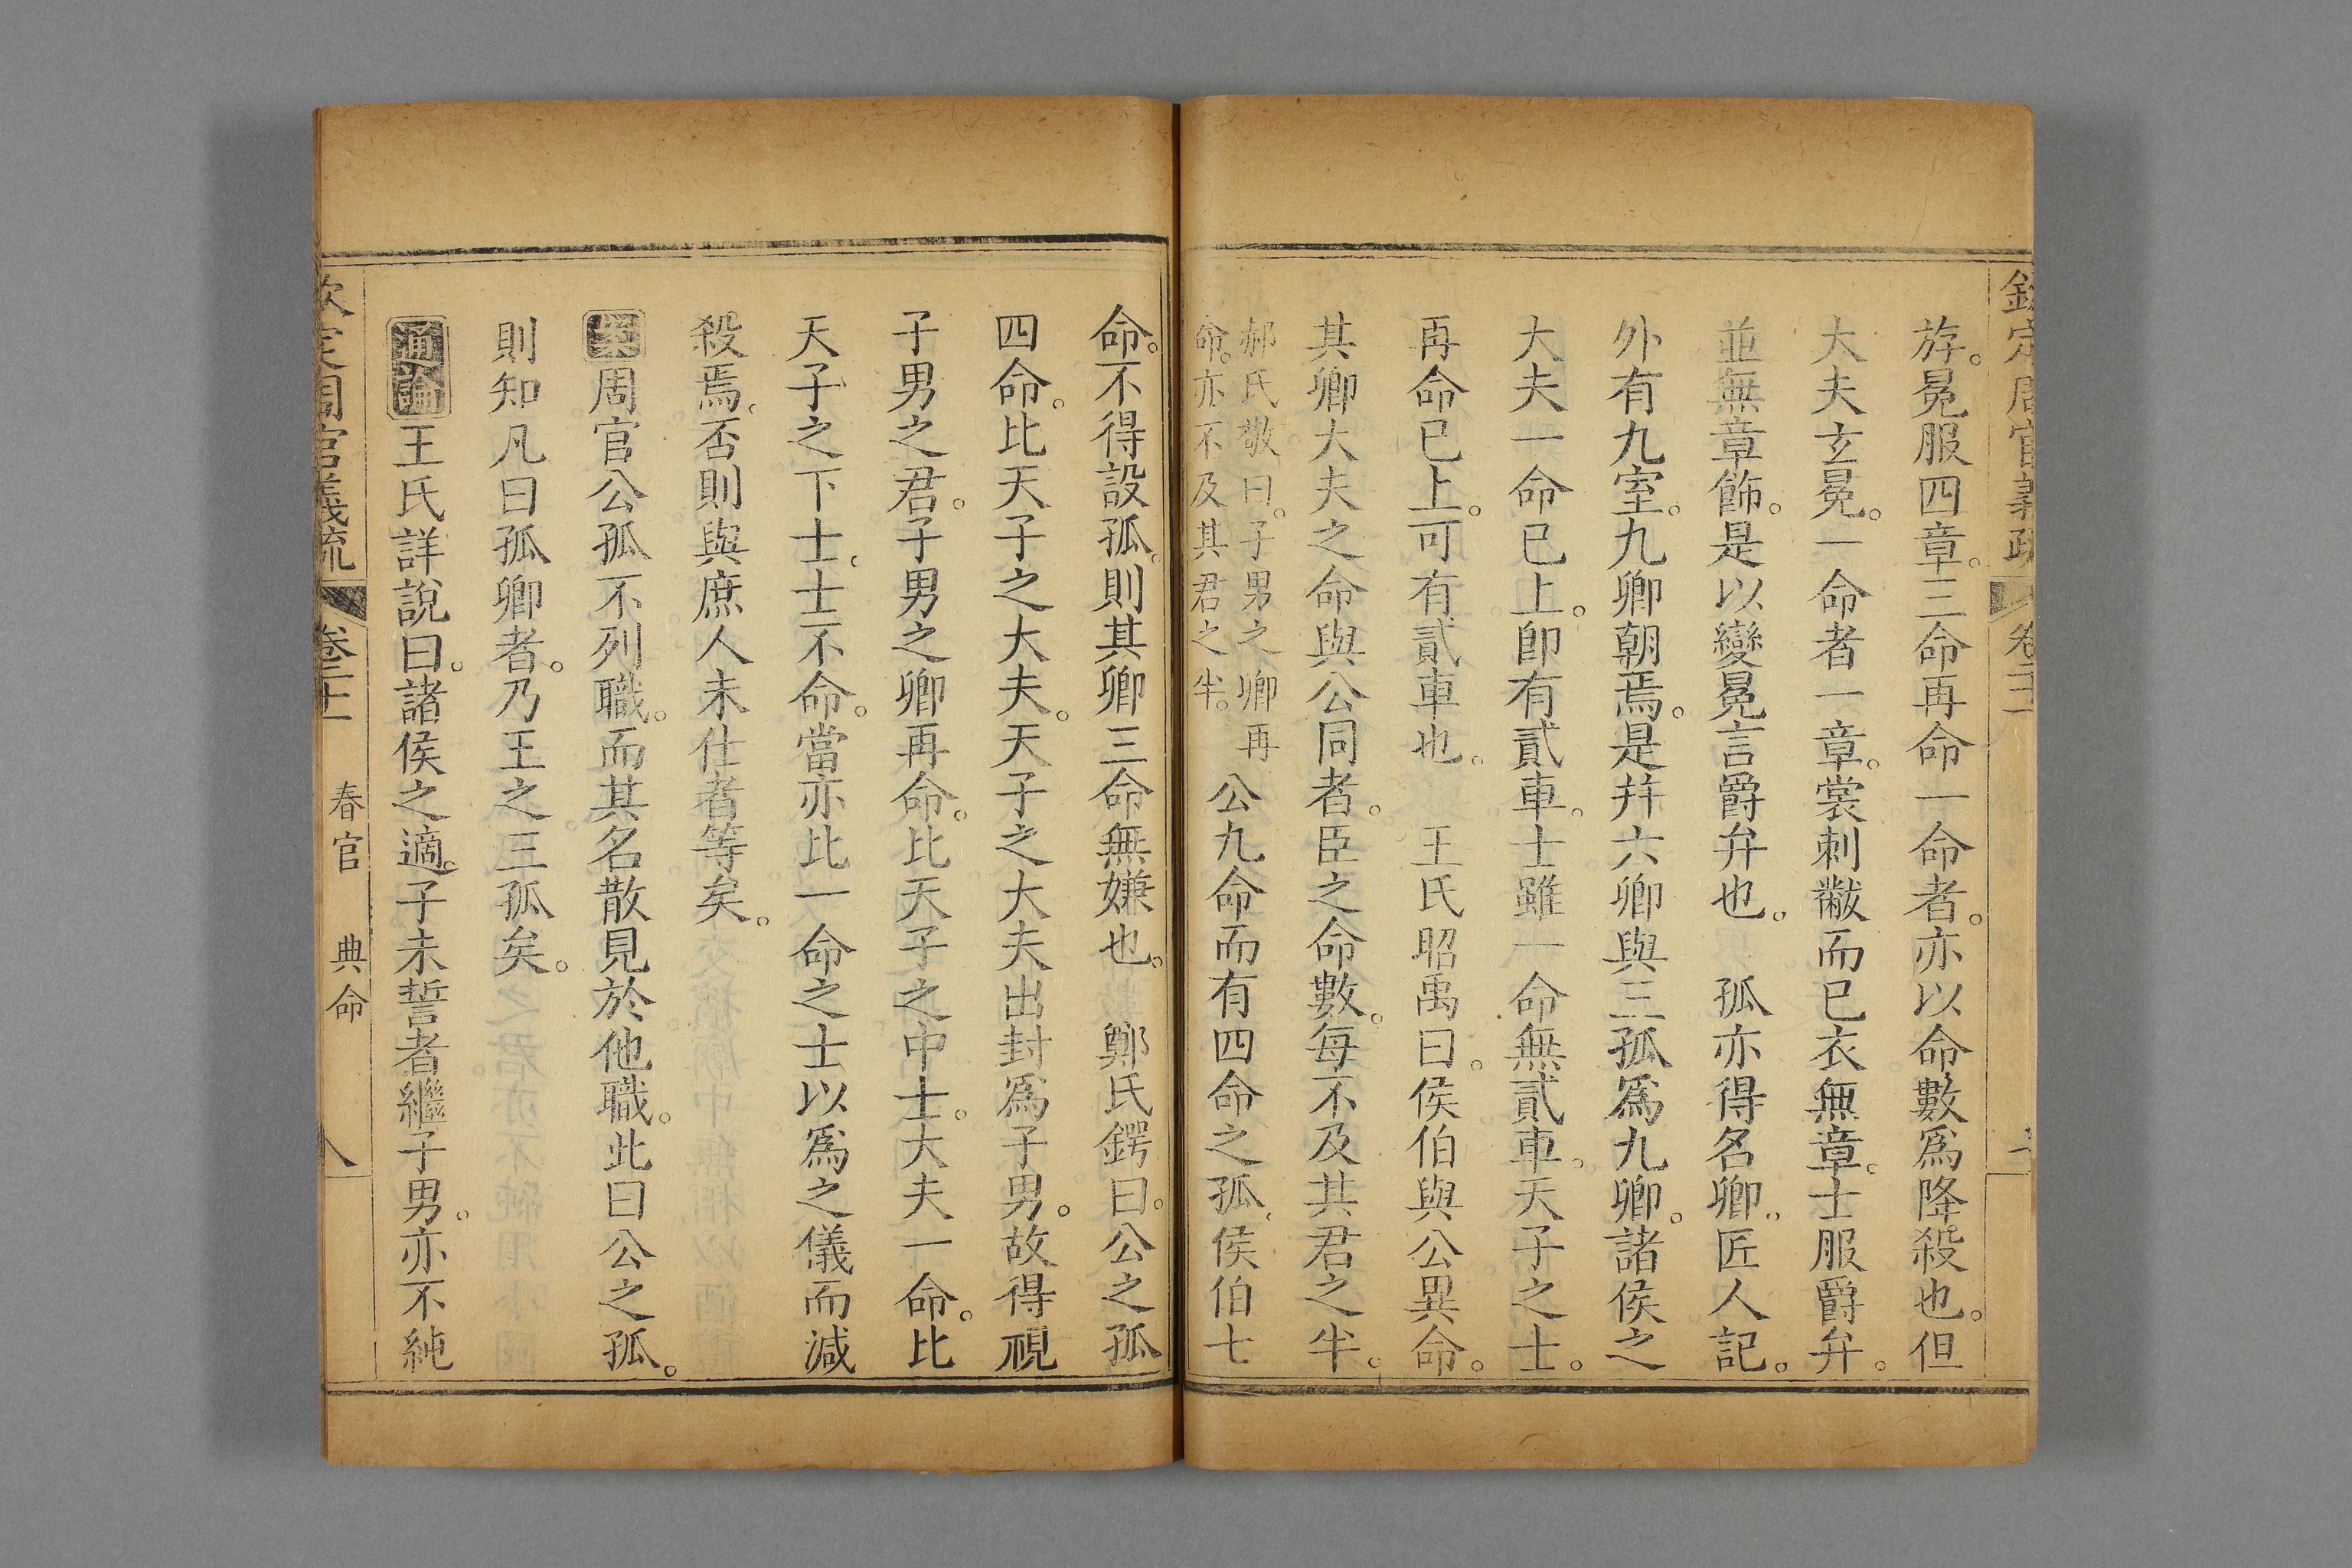 斿。冕服四章。三命再命一命者。亦以命數爲降殺也。但
大夫玄冕。一命者一章。裳刺黻而已衣無章。士服爵弁。
並無章飾。是以變冕言爵弁也。　孤亦得名卿。匠人記。
外有九室。九卿朝焉。是幷六卿與三孤爲九卿。諸侯之
大夫一命已上。卽有貳車。士雖一命無貳車。天子之士。
再命已上。可有貳車也。　王氏昭禹曰。侯伯與公異命。
其卿大夫之命與公同者。臣之命數。每不及其君之半。
郝氏敬曰。子男之卿再
命。亦不及其君之半。
公九命而有四命之孤。侯伯七
命。不得設孤。則其卿三命無嫌也。　鄭氏鍔曰。公之孤
四命。比天子之大夫。天子之大夫出封爲子男。故得視
子男之君。子男之卿再命。比天子之中士。大夫一命。比
天子之下士。士不命。當亦比一命之士以爲之儀而減
殺焉。否則與庶人未仕者等矣。
案周官公孤不列職。而其名散見於他職。此曰公之孤。
則知凡曰孤卿者。乃王之三孤矣。
通論王氏詳說曰。諸侯之適。子未誓者繼子男。亦不純
欽定周官義疏
卷二十一
春官　典命
八